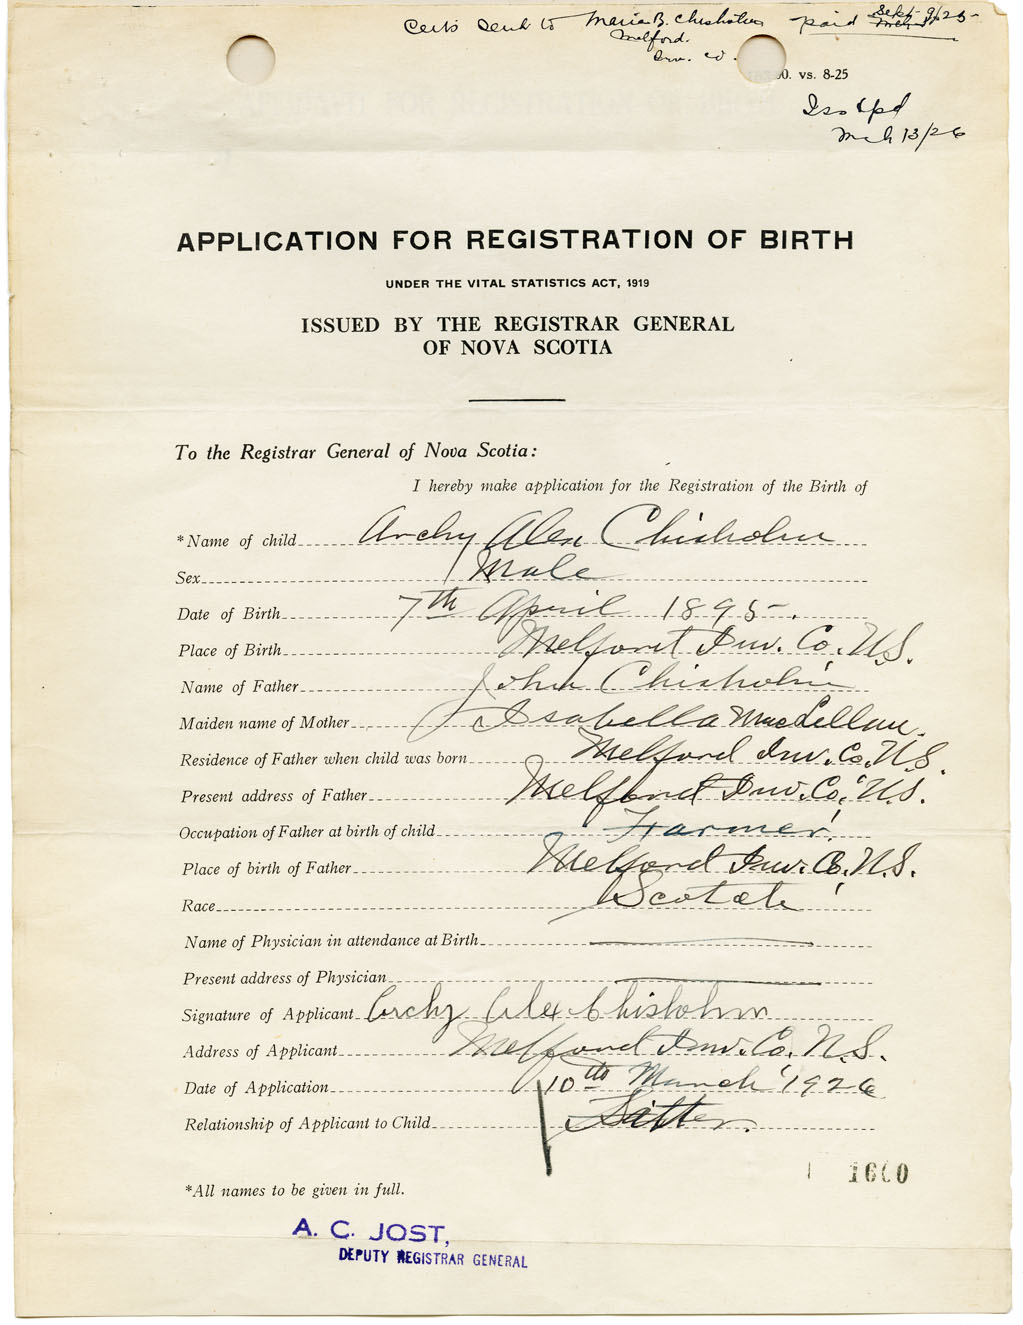 Certs sent to Maria B. Chisholm paid Sept 9/25
Melford.
Inv. Co.
00. vs. 8-25
Iss & pd
Mch 13/26
APPLICATION FOR REGISTRATION OF BIRTH
UNDER THE VITAL STATISTICS ACT, 1919
ISSUED BY THE REGISTRAR GENERAL
OF NOVA SCOTIA
To the Registrar General of Nova Scotia:
I hereby make application for the Registration of the Birth of
*Name of child Archy Alex Chisholm
Sex Male
Date of Birth 7th April 1895.
Place of Birth Melford Inv. Co. N.S.
Name of Father John Chisholm
Maiden name of Mother Isabella MacLellan.
Residence of Father when child was born Melford Inv. Co. N.S.
Present address of Father Melford Inv. Co. N.S.
Occupation of Father at birth of child Farmer.
Place of birth of Father Melford Inv. Co. N.S.
Race Scotch
Name of Physician in attendance at Birth
Present address of Physician
Signature of Applicant Archy Alex Chisholm
Address of Applicant Melford Inv. Co. N.S.
Date of Application 10th March 1926
Relationship of Applicant to Child
1600
*All names to be given in full.
A. C. JOST,
DEPUTY REGISTRAR GENERAL